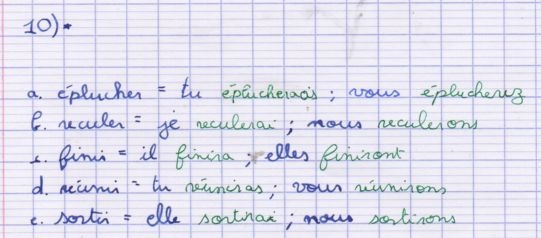 10)
a. éplucher = tu éplucheras ; vous éplucherez
b. reculer = je reculerai ; nous reculerons
c. finir = il finira ; elles finiront
d. réunir = tu réuniras ; vous réunirons
e. sortir = elle sortirai ; nous sortirons